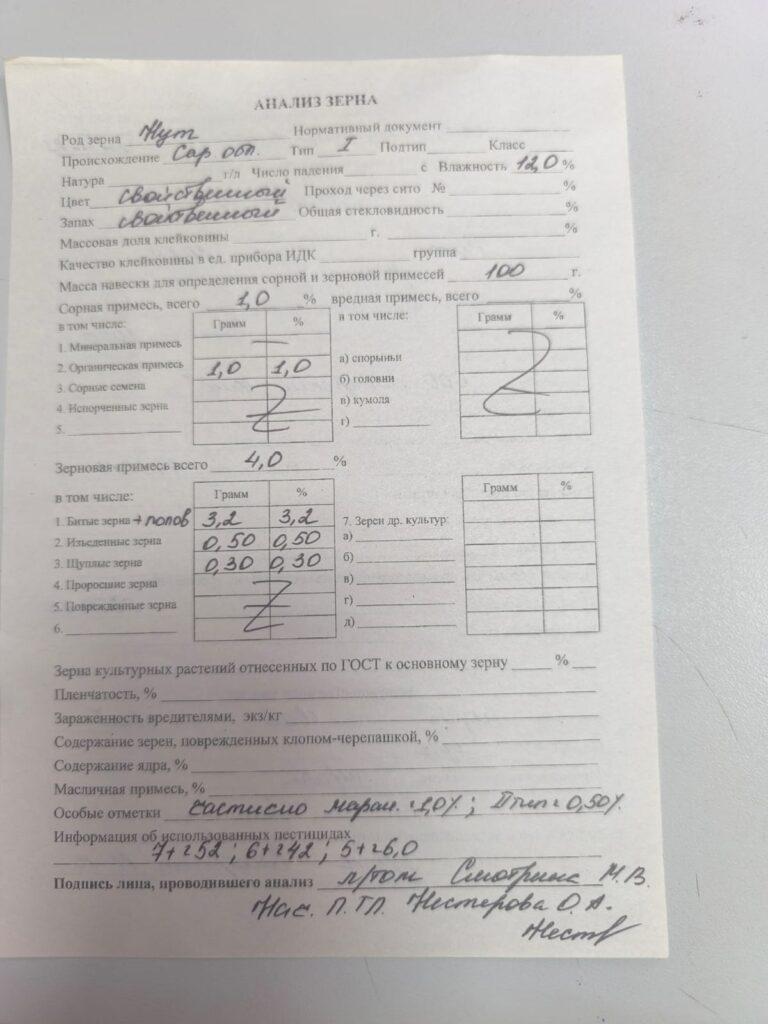 АНАЛИЗ ЗЕРНА
Род зерна Нут Нормативный документ
Происхождение Сар обл. Тип I Подтип Класс
Натура г/л Число падения с Влажность 12,0 %
Цвет свойственный Проход через сито № %
Запах свойственный Общая стекловидность %
Массовая доля клейковины г. %
Качество клейковины в ед. прибора ИДК группа
Масса навески для определения сорной и зерновой примесей 100 г.
Сорная примесь, всего 1,0 % вредная примесь, всего %
в том числе: Грамм % в том числе: Грамм %
1. Минеральная примесь –
2. Органическая примесь 1,0 1,0 а) спорыньи
3. Сорные семена б) головни
4. Испорченные зерна в) кумоля
5. г)
Зерновая примесь всего 4,0 %
в том числе: Грамм % Грамм %
1. Битые зерна + полов 3,2 3,2 7. Зерен др. культур:
2. Изъеденные зерна 0,50 0,50 а)
3. Щуплые зерна 0,30 0,30 б)
4. Проросшие зерна в)
5. Поврежденные зерна г)
6. д)
Зерна культурных растений отнесенных по ГОСТ к основному зерну %
Пленчатость, %
Зараженность вредителями, экз/кг
Содержание зерен, поврежденных клопом-черепашкой, %
Содержание ядра, %
Масличная примесь, %
Особые отметки маран. = 1,0%; II тип = 0,50%
Информация об использованных пестицидах
7+ = 52; 6+ = 42; 5+ = 6,0
Подпись лица, проводившего анализ Смотрина М.В.
Нач. П.Т.Л. Нестерова О.А.
Нест